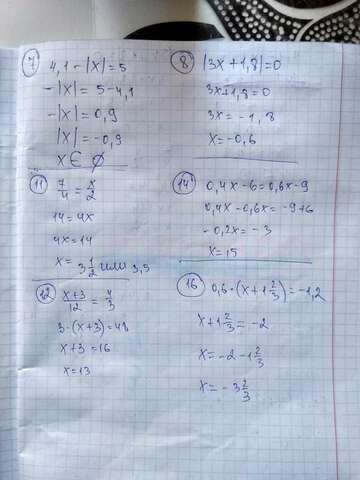 7
4,1-|x|=5
-|x| = 5-4,1
-|x| = 0,9
|x| = -0,9
x ∈ ∅
8
|3x+1,8|=0
3x+1,8=0
3x = -1,8
x = -0,6
11
7/4 = x/2
14 = 4x
4x = 14
x = 3 1/2 или 3,5
14
0,4x-6=0,6x-9
0,4x-0,6x=-9+6
-0,2x = -3
x = 15
12
x+3/12 = 4/3
3·(x+3)=48
x+3=16
x=13
16
0,6·(x+1 2/3)=-1,2
x+1 2/3 = -2
x = -2 -1 2/3
x = -3 2/3